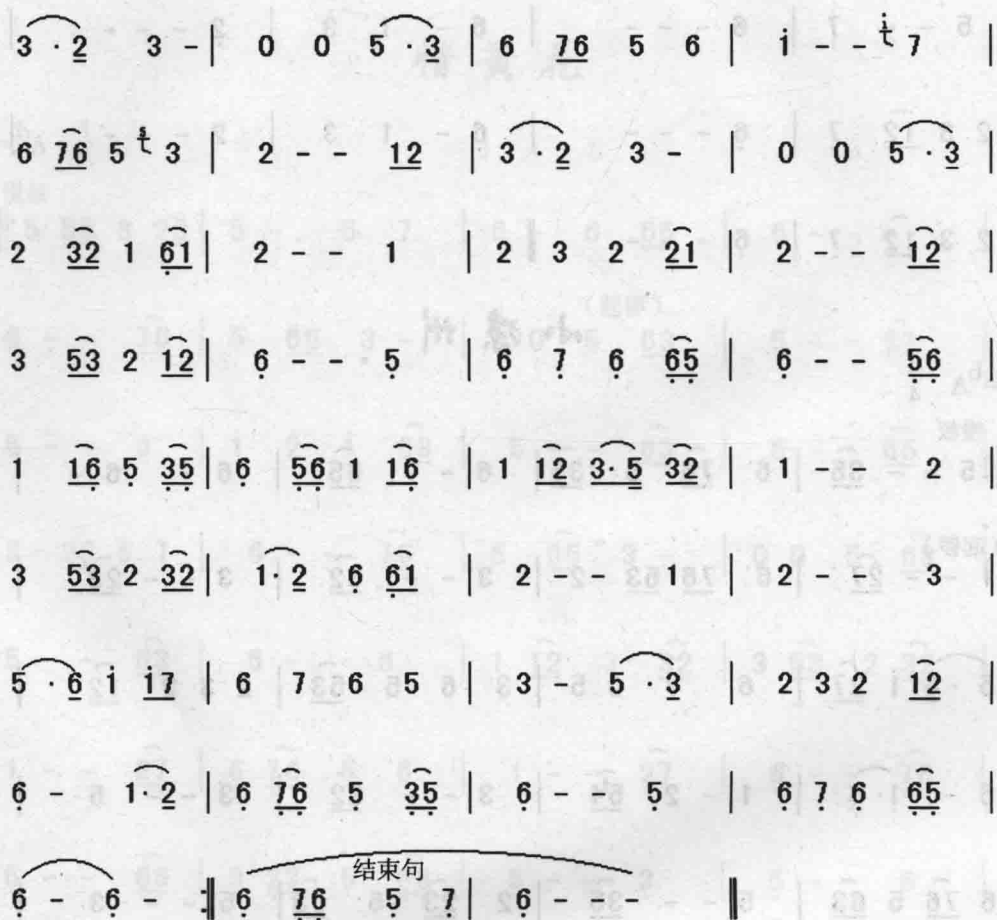 3 · 2 3 - | 0 0 5 · 3 | 6 76 5 6 | i - - i 7 |
6 76 5 5 3 | 2 - - 12 | 3 · 2 3 - | 0 0 5 · 3 |
2 32 1 6̣1 | 2 - - 1 | 2 3 2 21 | 2 - - 12 |
3 53 2 12 | 6̣ - - 5̣ | 6̣ 7̣ 6̣ 6̣5̣ | 6̣ - - 5̣6̣ |
1 16̣ 5̣ 3̣5̣ | 6̣ 5̣6̣ 1 16̣ | 1 12 3·5 32 | 1 - - 2 |
3 53 2 32 | 1· 2 6̣ 6̣1 | 2 - - 1 | 2 - - 3 |
5 · 6 i i7 | 6 7 6 5 | 3 - 5 · 3 | 2 3 2 12 |
6̣ - 1·2 | 6̣ 7̣6̣ 5̣ 3̣5̣ | 6̣ - - 5̣ | 6̣ 7̣ 6̣ 6̣5̣ |
结束句
6̣ - 6̣ - :| 6̣ 7̣6̣ 5̣ 7̣ | 6̣ - - - ‖